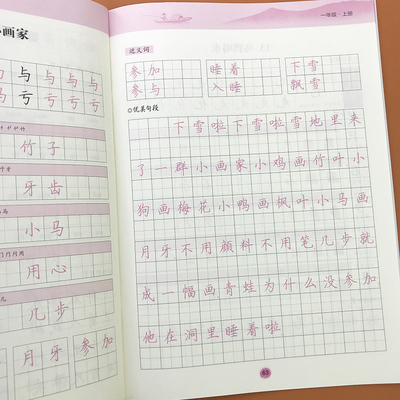 画家
与 与 与 与
亏 亏 亏 亏
竹 子
牙 齿
小 马
用 心
几 步
月 牙 参 加
一年级·上册
近义词
参加 睡着 下雪
参与 入睡 飘雪
◎优美句段
下雪啦下雪啦雪地里来
了一群小画家小鸡画竹叶小
狗画梅花小鸭画枫叶小马画
月牙不用颜料不用笔几步就
成一幅画青蛙为什么没参加
他在洞里睡着啦
63